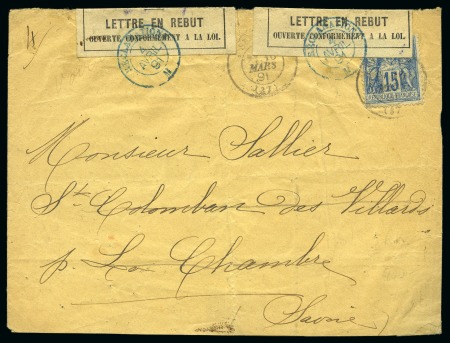 LETTRE EN REBUT
OUVERTE CONFORMÉMENT A LA LOI.
LETTRE EN REBUT
OUVERTE CONFORMÉMENT A LA LOI.
MARS
91
15
Monsieur Sallier
St Colomban des Villards
p. La Chambre
Savoie